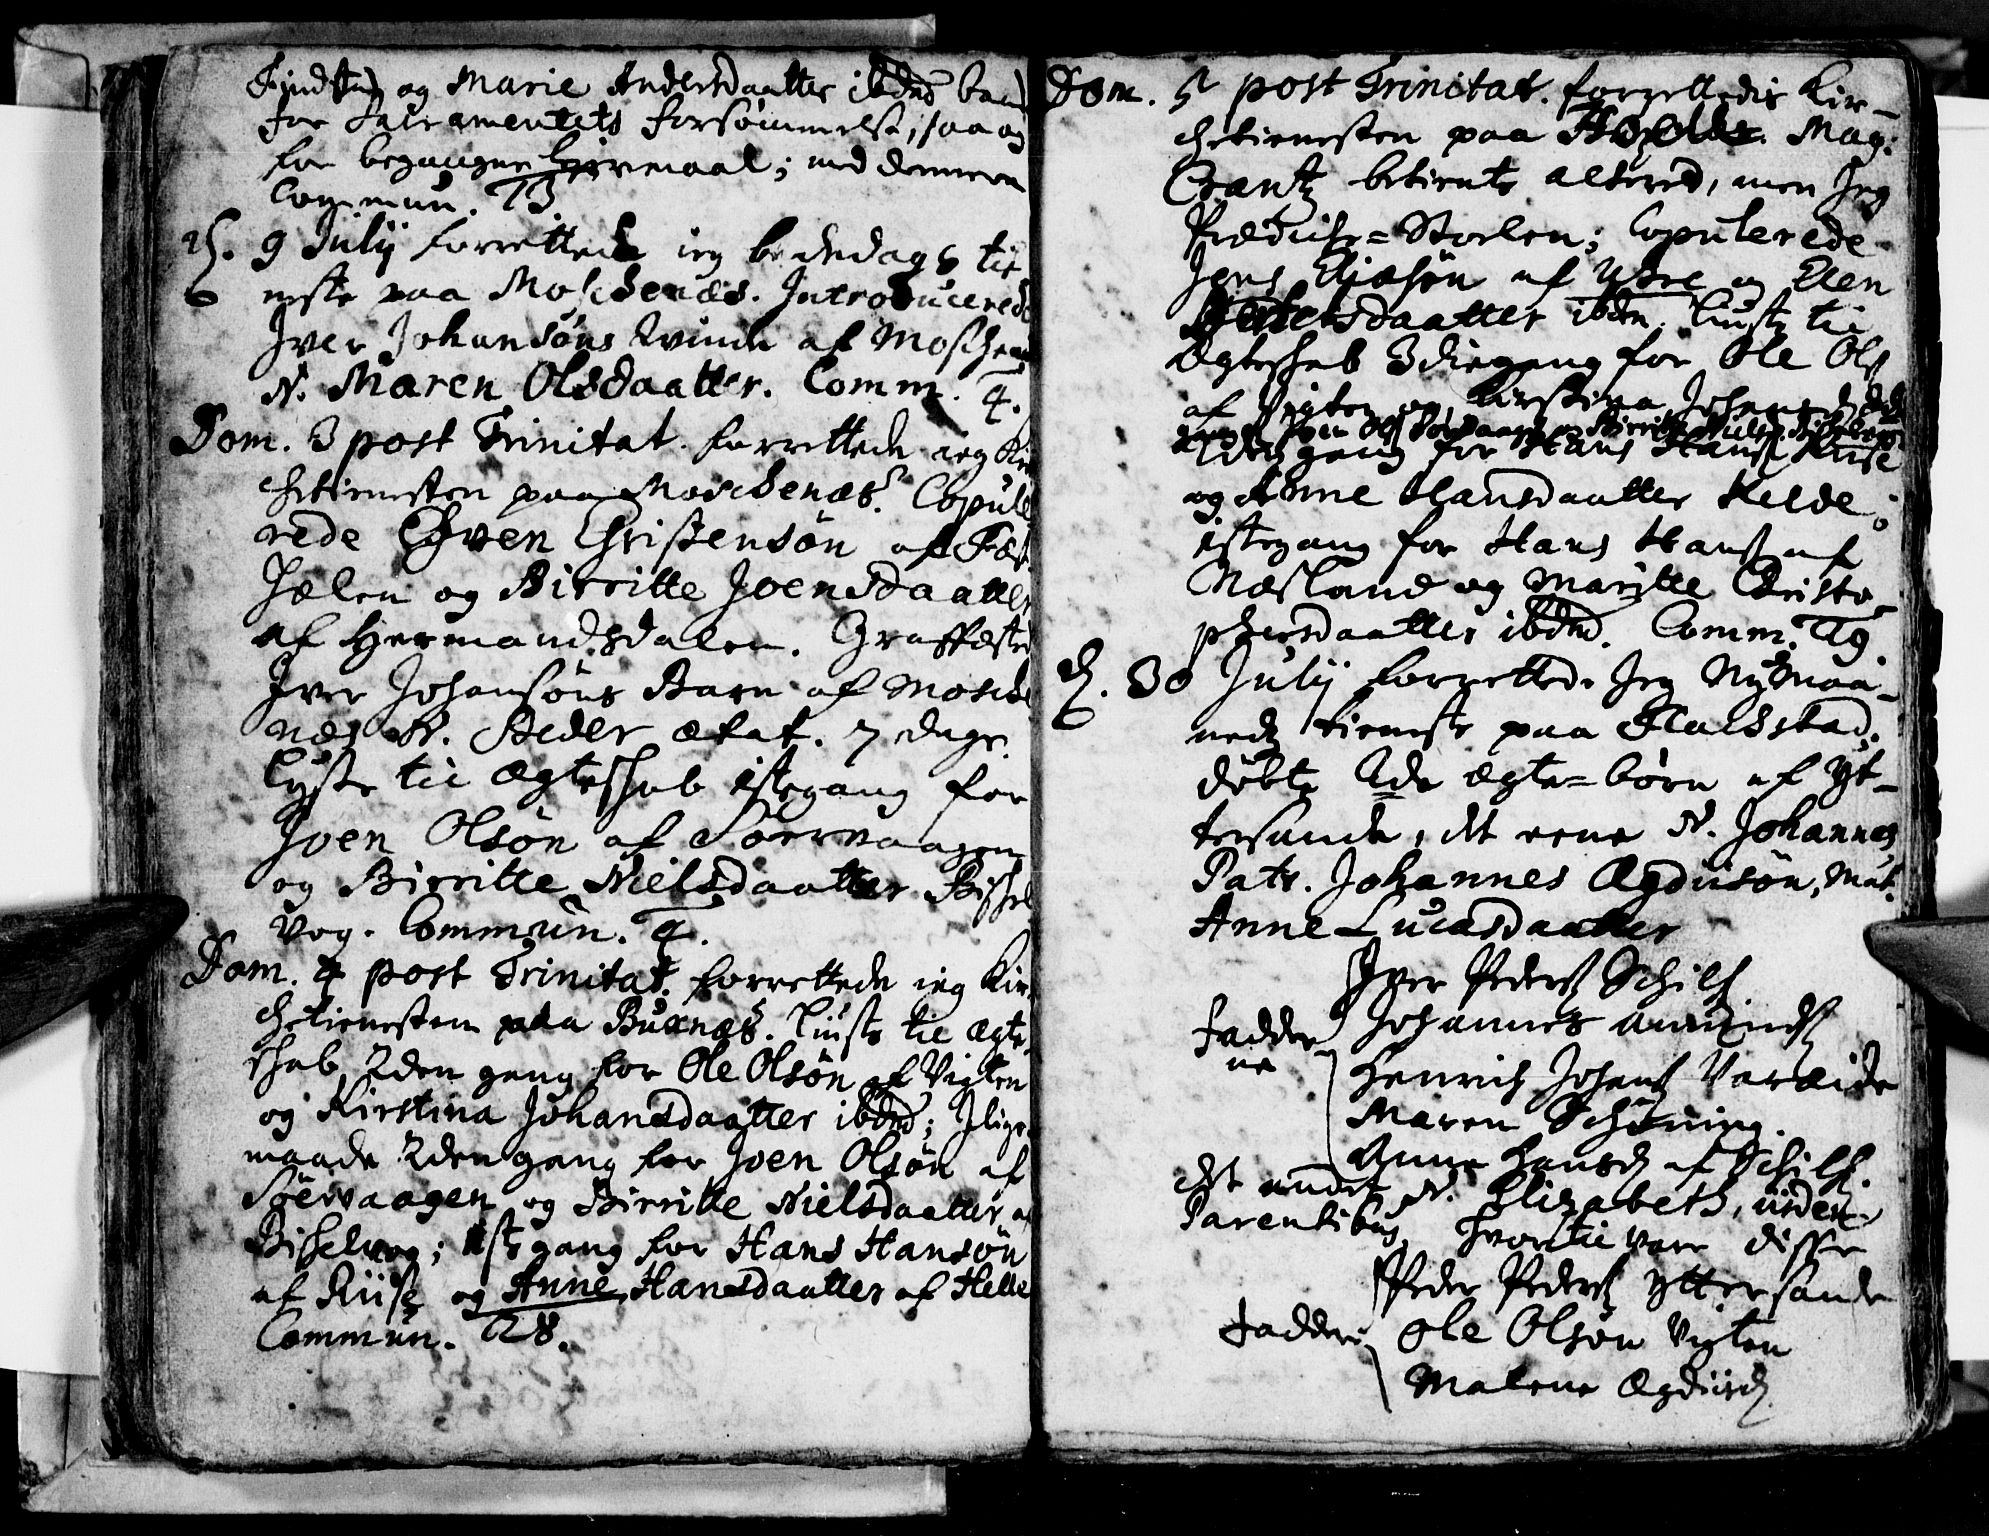 og Marie Andersdaatter ibdnd baade
for Sacramentets forsømmelse, saa og
for begangne Leyermaal; med dennem
Commun. 73
d. 9 Julij forrettede ieg bededags tie
neste paa Moschenæs. Introducerede
Iver Johansøns Qvinde af Moschenæs
N. Maren Olsdaatter. Comm. 4.
Dom. 3 post Trinitat. forrettede ieg Kir
chetienesten paa Moschenæs. Copule
rede Christensøn af
og Birritte Joensdaatter
af Hermandsdalen. Graffæstede
Iver Johansøns Barn af Mosche
næs N. Peder ætat. 7 dage.
lyste til Ægteschab 1ste gang for
Joen Olsøn af Sørvaagen
og Birritte Nielsdaatter Bissel
vog. Commun. 4.
Dom. 4 post Trinitat. forrettede ieg Kir
chetienesten paa Buxnæs. liuste til Ægte
schab 2den gang for Ole Olsøn af Vigten
og Kirstina Johansdaatter ibdnd; Ilige
maade 2den gang for Joen Olsøn af
Sørvaagen og Birritte Nielsdaatter af
Bisselvog; 1ste gang for Hans Hansøn
af Riise og Anne Hansdaatter af Helle
Commun. 28.
Dom. 5 post Trinitat. forrettedis Kir-
chetienesten paa Mag:
Crantz betiente alteret, men Jeg
Prædiche=Stoelen; Copulerede
Jens Eliasøn af og Elen
ibdn. liuste til
Ægteschab 3die gang for Ole Ols
af Vigten og Kirstina Johansd
gang for Joen Ols Sørvaagen og Birritte Nielsd
2den gang for Hans Hans Riise
og Anne Hansdaatter Helle;
1ste gang for Hans Hans af
Næsland og Maritte Christo-
phersdaatter ibdnd. Comm. 79.
d. 30 Julij forrettede Jeg Nymaa-
neds tieneste paa Flakstad.
døbte 2de Ægte=børn af Yt-
tersande, det eene N. Johannes
Patr. Johannes Ægdiusøn, Mat.
Anne Lucasdaatter
Iver Peders Schilf
Johannes
Fadder
ne
Henrich Johans
Maren Schøning.
Anne Hansd af Schilf.
det andet N. Elizabeth, iisdem
Parentibus, hvortil vare disse
Peder Peders Yttersande
Faddere Ole Olsøn Vigten
Malene Ægdiisd